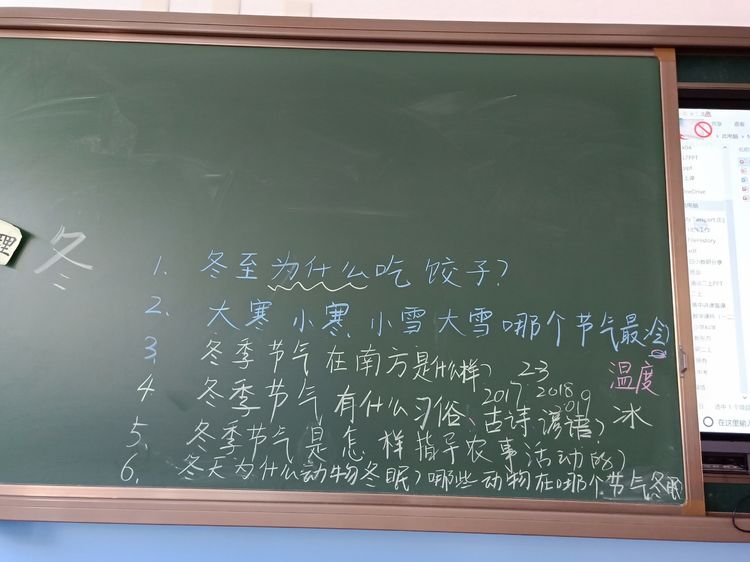 理
冬
1. 冬至为什么吃饺子?
2. 大寒 小寒 小雪 大雪 哪个节气最冷
3. 冬季节气在南方是什么样? 23
温度
4 冬季节气有什么习俗、古诗、谚语?
2017 2018 2019
冰
5. 冬季节气是怎样指导农事活动的?
6. 冬天为什么动物冬眠?哪些动物在哪个节气冬眠
共享 查看
此电脑
在这里输入